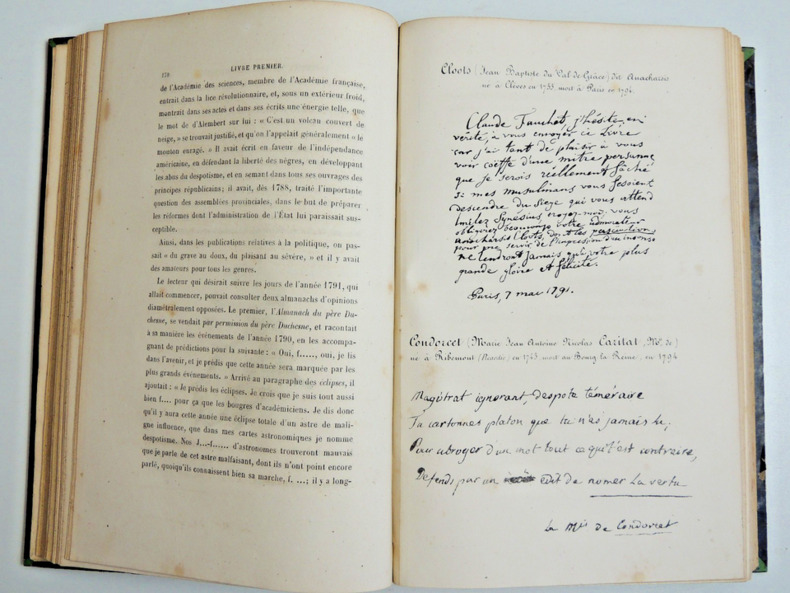 178
LIVRE PREMIER.
de l'Académie des sciences, membre de l'Académie française,
entrait dans la lice révolutionnaire, et, sous un extérieur froid,
montrait dans ses actes et dans ses écrits une énergie telle, que
le mot de d'Alembert sur lui : « C'est un volcan couvert de
neige, » se trouvait justifié, et qu'on l'appelait généralement « le
mouton enragé. » Il avait écrit en faveur de l'indépendance
américaine, en défendant la liberté des nègres, en développant
les abus du despotisme, et en semant dans tous ses ouvrages des
principes républicains; il avait, dès 1788, traité l'importante
question des assemblées provinciales, dans le but de préparer
les réformes dont l'administration de l'État lui paraissait sus-
ceptible.
Ainsi, dans les publications relatives à la politique, on pas-
sait « du grave au doux, du plaisant au sévère, » et il y avait
des amateurs pour tous les genres.
Le lecteur qui désirait suivre les jours de l'année 1791, qui
allait commencer, pouvait consulter deux almanachs d'opinions
diamétralement opposées. Le premier, l'Almanach du père Du-
chesne, se vendait par permission du père Duchesne, et racontait
à sa manière les événements de l'année 1790, en les accompa-
gnant de prédictions pour la suivante : « Oui, f......, oui, je lis
dans l'avenir, et je prédis que cette année sera marquée par les
plus grands événements. » Arrivé au paragraphe des éclipses, il
ajoutait : « Je prédis les éclipses. Je crois que je suis tout aussi
bien f.... pour ça que les bougres d'académiciens. Je dis donc
qu'il y aura cette année une éclipse totale d'un astre de mali-
gne influence, que dans mes cartes astronomiques je nomme
despotisme. Nos J...-f...... d'astronomes trouveront mauvais
que je parle de cet astre malfaisant, dont ils n'ont point encore
parlé, quoiqu'ils connaissent bien sa marche, f. ...; il y a long-
Cloots (Jean Baptiste du Val-de-Grâce) dit Anacharsis
né à Clèves en 1755, mort à Paris en 1794
Claude Fauchet, j'hésite, en
vérité, à vous envoyer ce Livre
car j'ai tant de plaisir à vous
voir coëffé d'une mitre persanne,
que je serois réellement fâché
si mes musulmans vous fesoient
descendre du siege qui vous attend
imitez Synesius croyez-moi, vous
obligerez beaucoup votre admirateur
anacharsis Cloots, dont les
pour une
ne tendront jamais qu'à votre plus
grande gloire et félicité.
Paris, 7 mai 1791.
Condorcet (Marie Jean Antoine Nicolas Caritat (Mis. de)
né à Ribemont (Picardie) en 1743, mort au Bourg la Reine, en 1794
Magistrat ignorant, despote téméraire
Tu cartonnes platon que tu n'as jamais lu;
Pour abroger d'un mot tout ce qui t'est contraire,
Defends par un édit de nomer la vertu
Le Mis de Condorcet